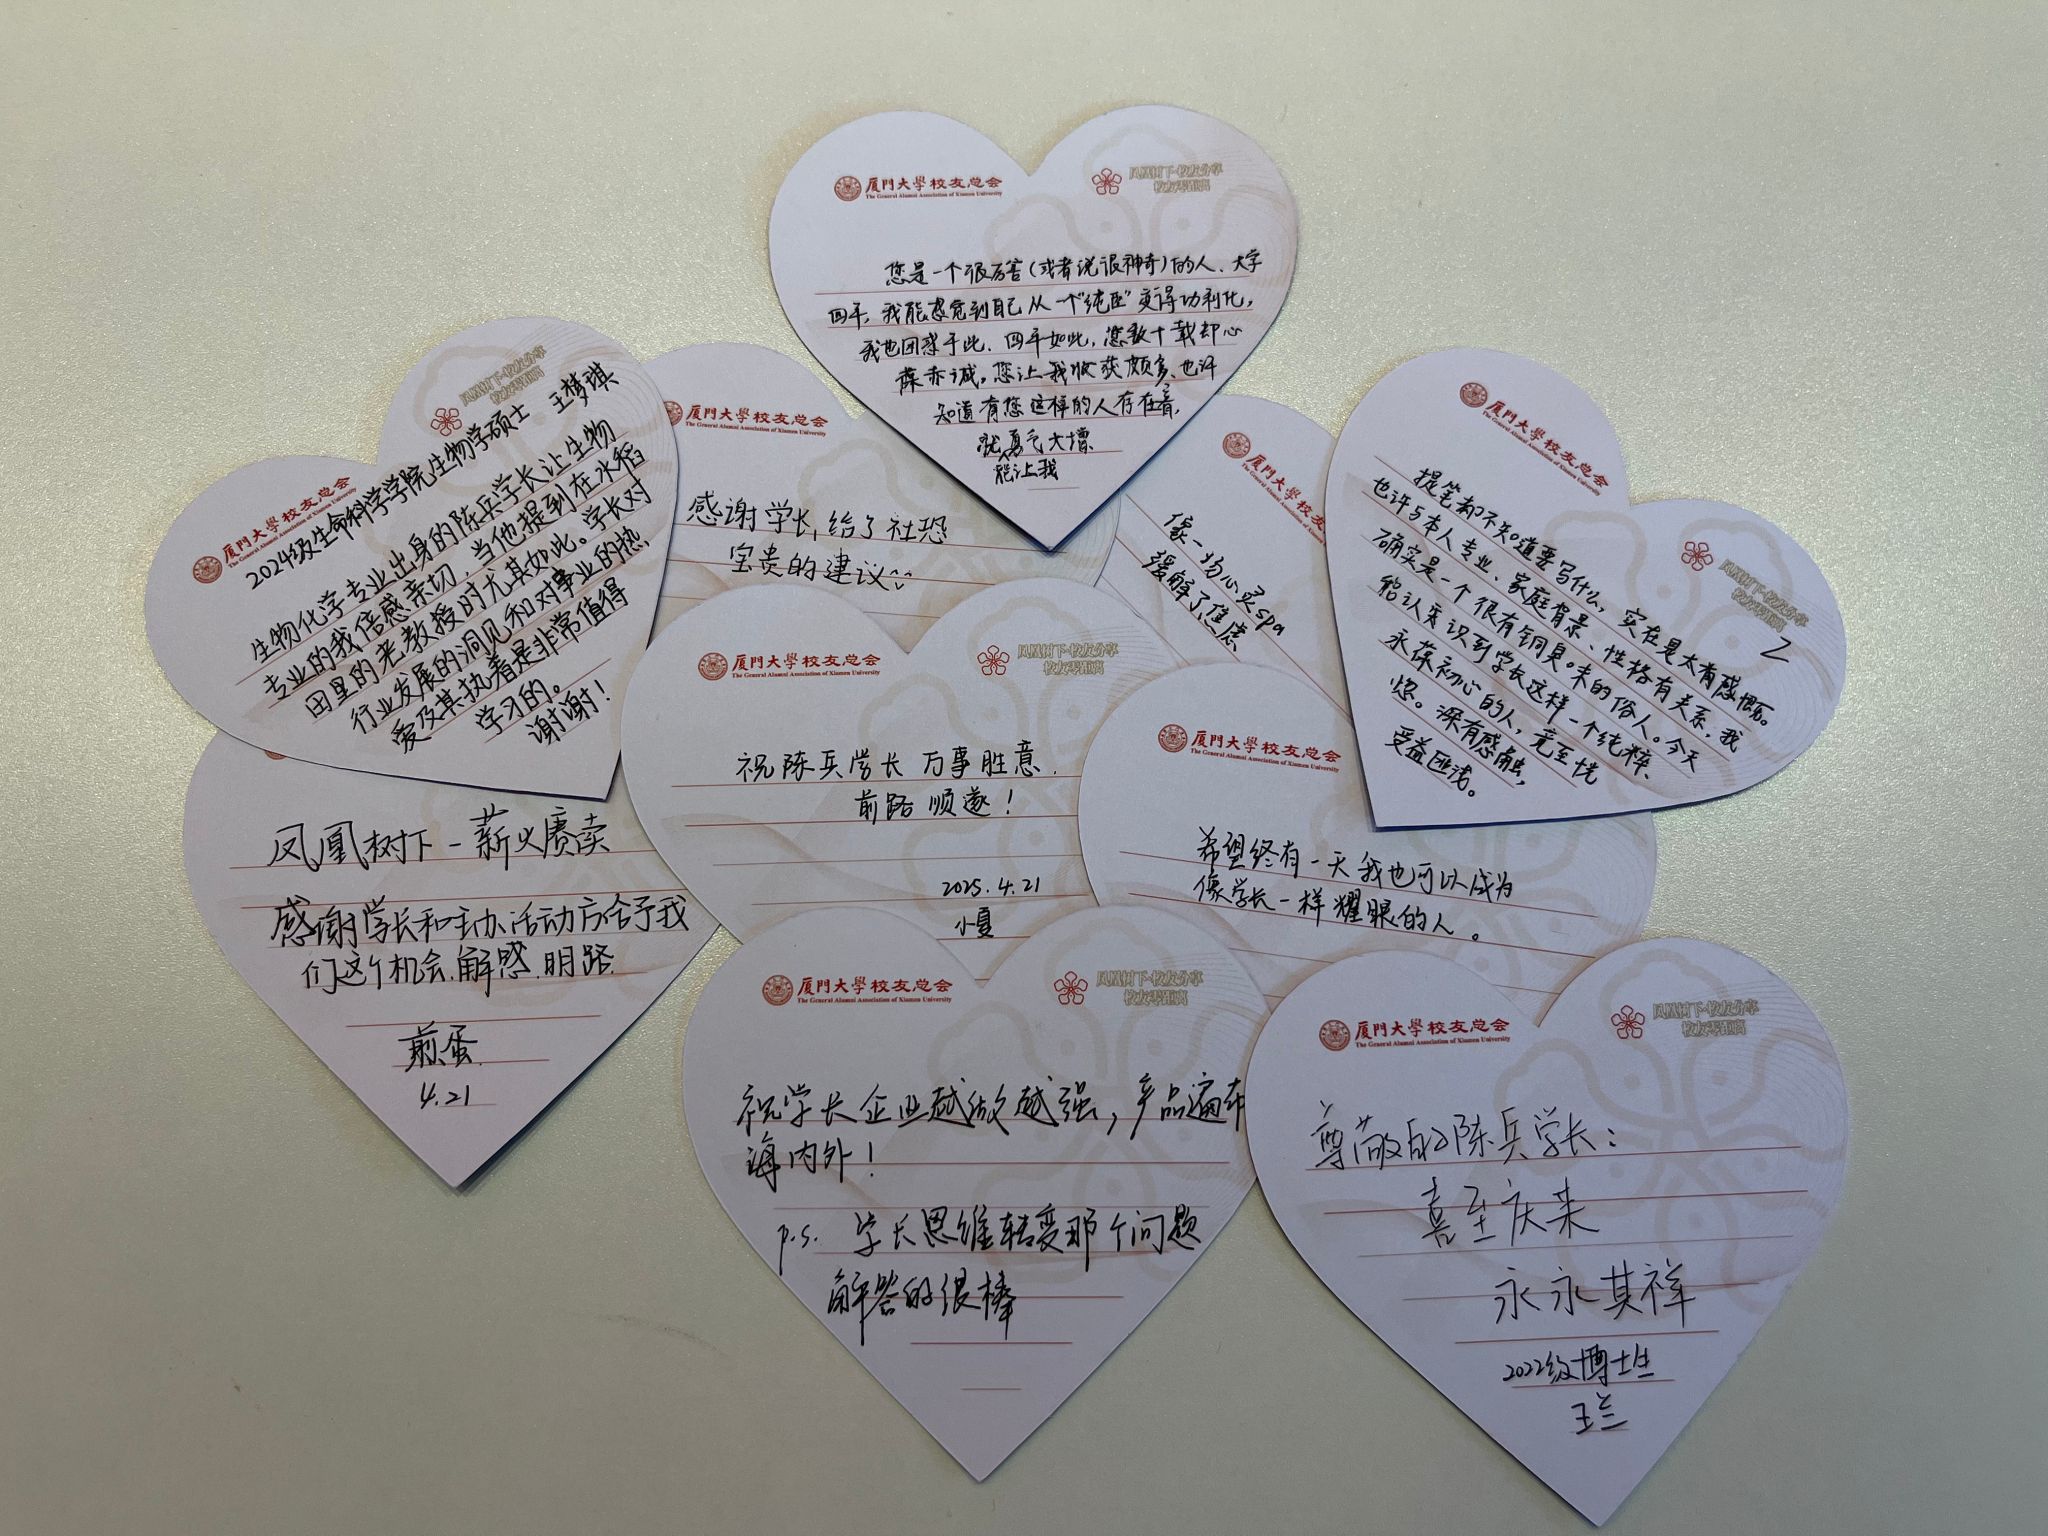 厦門大學校友总会
The General Alumni Association of Xiamen University
凤凰树下·校友分享
校友零距离
您是一个很厉害(或者说很神奇)的人、大学
四年,我能感觉到自己从一个"纯臣"变得功利化,
我也困惑于此、四年如此,您数十载却心
葆赤诚。您让我收获颇多、也许
知道有您这样的人存在着,
就勇气大增
能让我
厦門大學校友总会
凤凰树下·校友分享
校友零距离
2024级生命科学学院生物学硕士 王梦琪
生物化学专业出身的陈兵学长让生物
专业的我倍感亲切,当他提到在水稻
田里的老教授时尤其如此。学长对
行业发展的洞见和对事业的热
爱及其执着是非常值得
学习的。
谢谢!
厦門大學校友总会
The General Alumni Association of Xiamen University
感谢学长,给了社恐
宝贵的建议
像一场心灵spa
缓解了焦虑
厦門大學校友总会
凤凰树下·校友分享
校友零距离
2
提笔都不知道要写什么,实在是太有感慨。
也许与本人专业、家庭背景、性格有关系,我
确实是一个很有铜臭味的俗人。今天
认识到学长这样一个纯粹、
永葆初心的人,竟至恍
惚。深有感触,
受益匪浅。
凤凰树下-薪火赓续
感谢学长和主办活动方给予我
们这个机会,解惑,明路
煎蛋
4.21
厦門大學校友总会
The General Alumni Association of Xiamen University
凤凰树下·校友分享
校友零距离
祝陈兵学长万事胜意,
前路顺遂!
2025.4.21
小夏
厦門大學校友总会
The General Alumni Association of Xiamen University
希望终有一天我也可以成为
像学长一样耀眼的人。
厦門大學校友总会
The General Alumni Association of Xiamen University
凤凰树下·校友分享
校友零距离
祝学长企业越做越强,产品遍布
海内外!
p.s. 学长思维转变那个问题
解答的很棒
厦門大學校友总会
The General Alumni Association of Xiamen University
凤凰树下·校友分享
校友零距离
尊敬的陈兵学长:
喜至庆来
永永其祥
2022级博士生
王兰